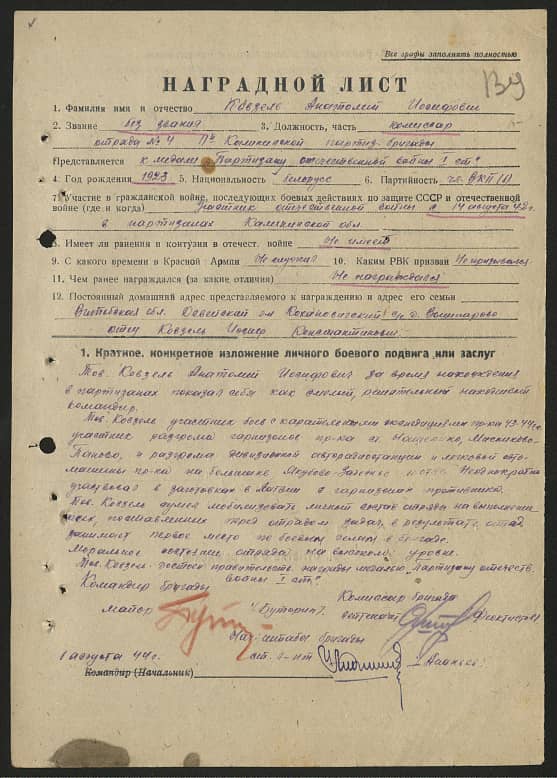 Все графы заполнять полностью
НАГРАДНОЙ ЛИСТ
1. Фамилия имя и отчество Ковзель Анатолий Иосифович
2. Звание без звания 3. Должность, часть комиссар
отряда № 4 Калининской партиз. бригады
Представляется к медали "Партизану отечественной войны I ст."
4. Год рождения 1923 5. Национальность белорус 6. Партийность чл. ВКП(б)
7. Участие в гражданской войне, последующих боевых действиях по защите СССР и отечественной
войне (где и когда) участник отечественной войны с 14 августа 42 г.
в партизанах Калининской обл.
8. Имеет ли ранения и контузия в отечест. войне Не имеет
9. С какого времени в Красной Армии Не служил 10. Каким РВК призван Не призывался
11. Чем ранее награждался (за какие отличия) Не награждался
12. Постоянный домашний адрес представляемого к награждению и адрес его семьи
Витебская обл. с/с д.
отец Ковзель Иосиф Константинович
1. Краткое, конкретное изложение личного боевого подвига или заслуг
Тов. Ковзель Анатолий Иосифович за время нахождения
в партизанах показал себя как смелый, решительный находчивый
командир.
Тов. Ковзель участник боев с карательными экспедициями пр-ка 43-44 гг.
участник разгрома гарнизонов пр-ка ст.
и разгрома авторадиостанции и легковой авто-
машины пр-ка на большаке Неоднократно
участвовал в заготовках в Латвии в гарнизонах противника.
Тов. Ковзель умел мобилизовать личный состав отряда на выполнение
поставленных перед отрядом задач, в результате отряд
занимает первое место по боевым делам в бригаде.
Моральное состояние отряда на высоком уровне.
Тов. Ковзель достоин правительств. награды медалью "Партизану отечеств.
войны I ст."
Командир бригады Комиссар бригады
майор /Буторин/. лейтенант
Нач. штаба бригады
1 августа 44 г. ст. л-нт
Командир (Начальник)